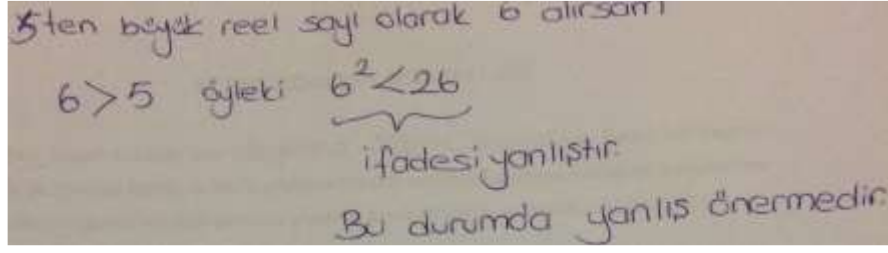 5ten büyük reel sayı olarak 6 alırsam
6>5 öyleki 6²<26
ifadesi yanlıştır.
Bu durumda yanlış önermedir.